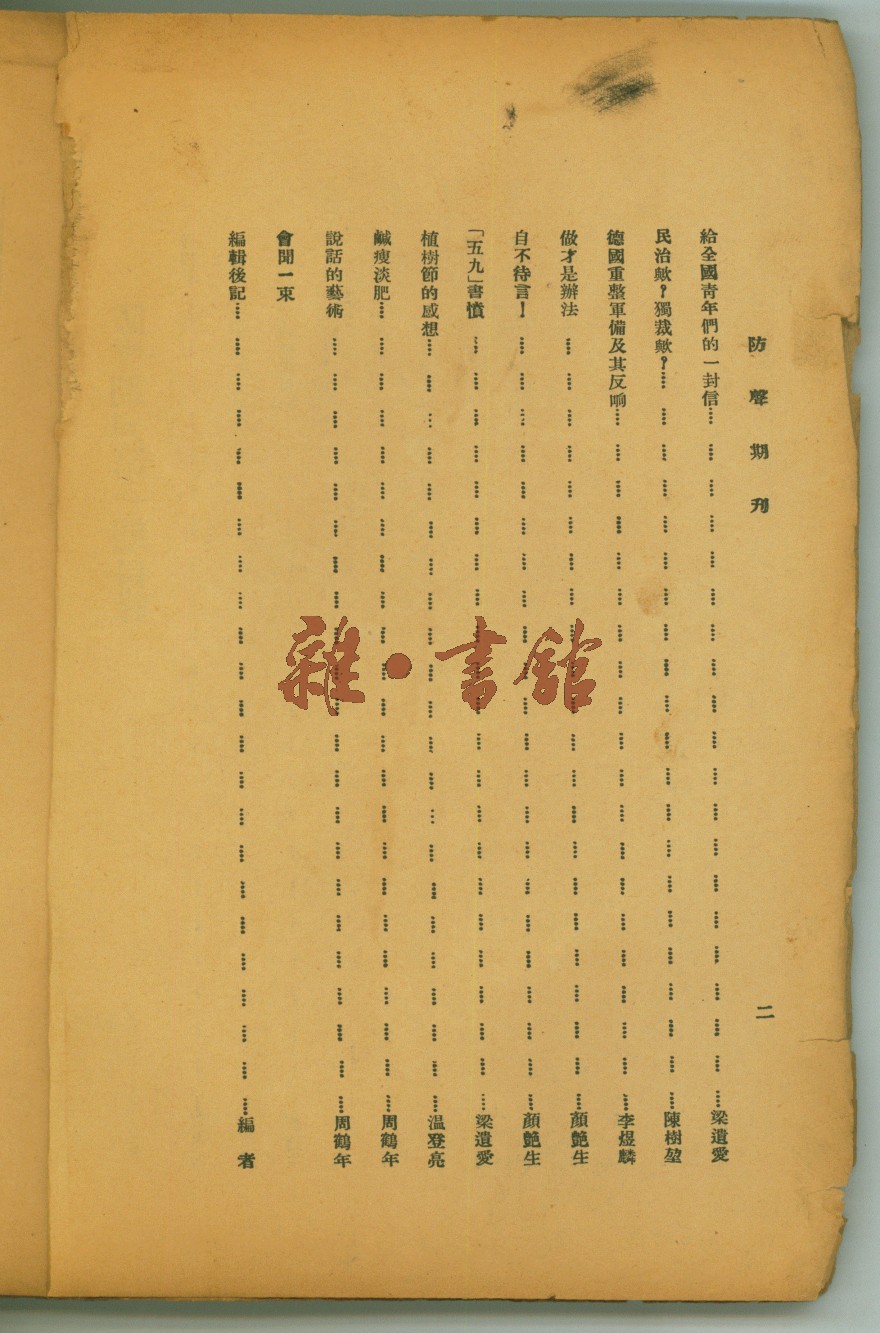 防聲期刊 二
給全國青年們的一封信…………梁遺愛
民治歟?獨裁歟?…………陳樹堃
德國重整軍備及其反响…………李煜麟
做才是辦法…………顏艶生
自不待言!…………顏艶生
「五九」書憤…………梁遺愛
植樹節的感想…………溫登亮
鹹瘦淡肥…………周鶴年
說話的藝術…………周鶴年
會聞一束
編輯後記…………編者
雜·書館